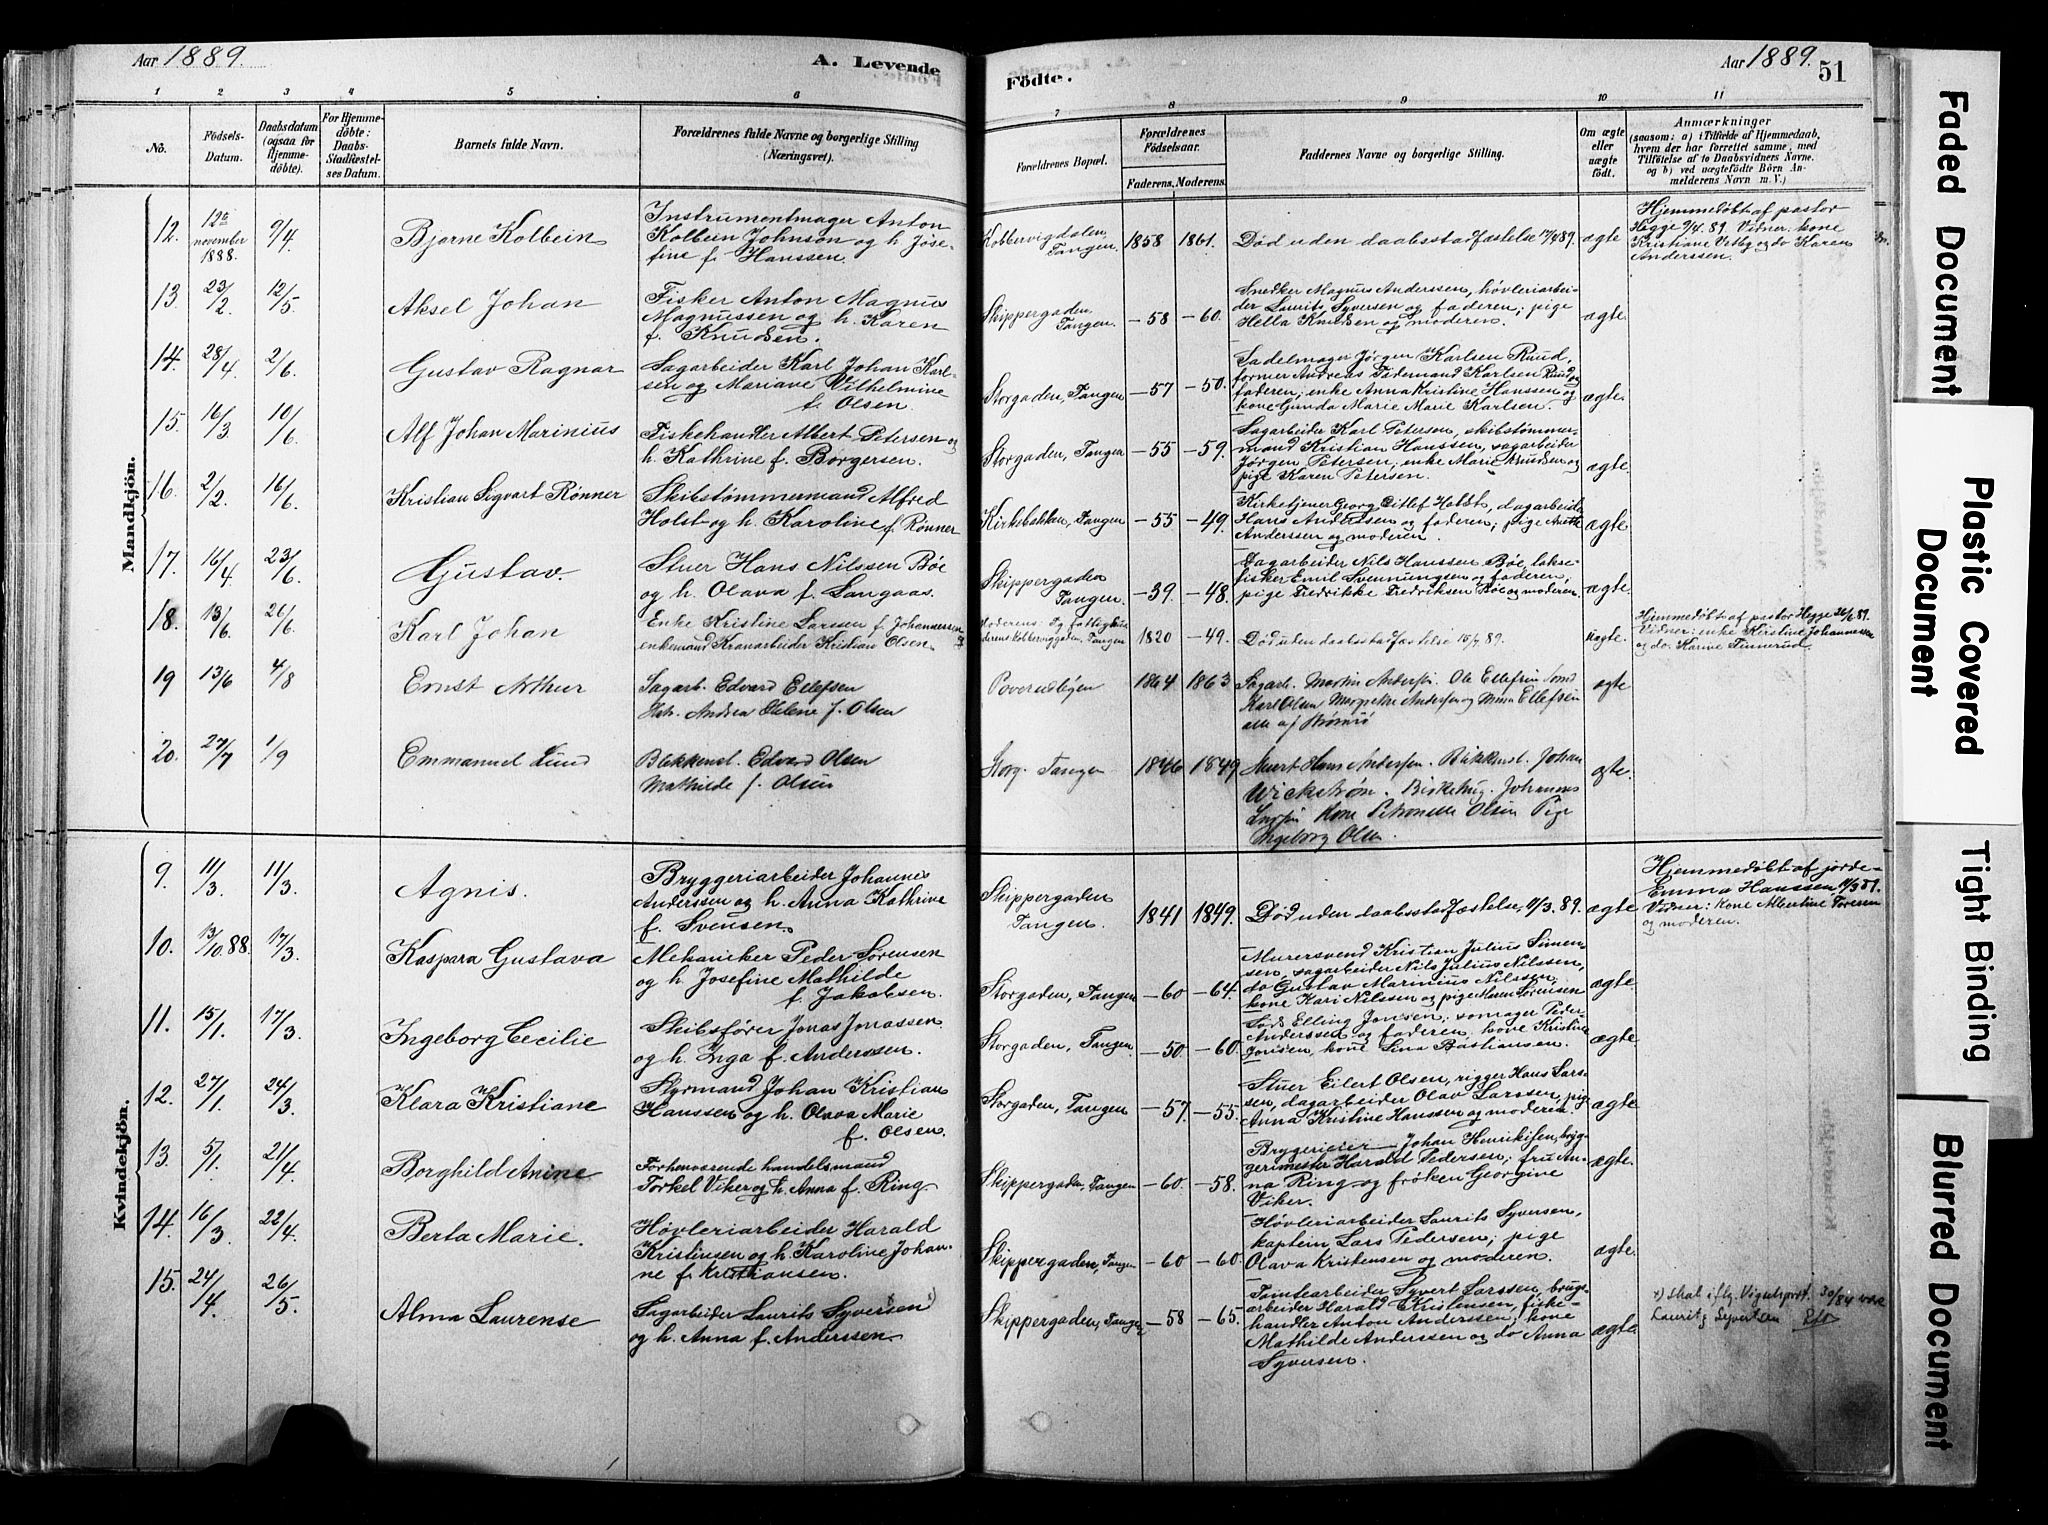 Aar 1889.
A. Levende
1 2 3 4 5 6
No.
Födsels-
Datum.
Daabsdatum
(ogsaa for
Hjemme-
døbte).
For Hjemme-
døbte:
Daabs-
Stadfæstel-
ses Datum.
Barnets fulde Navn.
Forældrenes fulde Navne og borgerlige Stilling
(Næringsvei).
Mandkjön.
12. 12te november 1888. 9/4 Bjarne Kolbein
Instrumentmager Anton
Kolbein Johnson og h. Jose-
fine f. Hanssen.
13. 23/2. 12/5 Aksel Johan
Fisker Anton Magnus
Magnussen og h. Karen
f. Knudsen.
14. 28/4. 2/6. Gustav Ragnar
Sagarbeider Karl Johan Karl-
sen og Mariane Vilhelmine
f. Olsen.
15. 16/3. 10/6 Alf Johan Marinius
Fiskehandler Albert Petersen og
h. Kathrine f. Borgersen.
16. 2/2. 16/6 Kristian Sigvart Rønner
Skibstømmermand Alfred
Holst og h. Karoline f. Rønner
17. 16/4 23/6. Gustav.
Stuer Hans Nilssen Böe
og h. Olava f. Langaas.
18. 13/6 26/6. Karl Johan
Enke Kristine Larssen f. Johannessen
enkemand Kranarbeider Kristian Olsen.
19 13/6 4/8 Ernst Arthur
Sagarb. Edvard Ellefsen
Hst. Andrea Helene f. Olsen
20. 27/7 1/9 Emmanuel Lund
Blikkensl. Edvard Olsen
Mathilde f. Olsen
Kvindekjön.
9. 11/3. 11/3. Agnis.
Bryggeriarbeider Johannes
Anderssen og h. Anna Kathrine
f. Svensen.
10. 13/10.88. 17/3. Kaspara Gustava
Mekaniker Peder Sørensen
og h. Josefine Mathilde
f. Jakobsen.
11. 15/1. 17/3. Ingeborg Cecilie
Skibsfører Jonas Jonassen
og h. Inga f. Anderssen.
12. 27/1. 24/3. Klara Kristiane
Styrmand Johan Kristian
Hanssen og h. Olava Marie
f. Olsen.
13. 5/1. 21/4. Borghild Anine
Forhenværende handelsmand
Torkel Viker og h. Anna f. Ring.
14. 16/3. 22/4. Berta Marie.
Høvleriarbeider Harald
Kristensen og h. Karoline Johan-
ne f. Kristiansen.
15. 24/4. 26/5. Alma Laurense
Sagarbeider Laurits Syversen
og h. Anna f. Anderssen.
Födte.
Aar 1889.
51
7 8 9 10 11
Forældrenes Bopæl.
Forældrenes
Födselsaar.
Faderens. Moderens.
Faddernes Navne og borgerlige Stilling.
Om ægte
eller
uægte
födt.
Anmærkninger
(saasom: a) i Tilfælde af Hjemmedaab,
hvem der har forrettet samme, med
Tilföielse af to Daabsvidners Navne.
og b) ved uægtefödte Börn An-
melderens Navn m. V.)
Kobbervigdalen, Tangen. 1858 1861.
Død uden daabsstadfæstelse 17/4 89. ægte
Hjemmedøbt af pastor
Hegge 9/4. 89. Vidner: kone
Kristiane Vetby og do Karen
Anderssen.
Skippergaden, Tangen. -58 -60.
Snedker Magnus Anderssen, høvleriarbei-
der Laurits Syversen og faderen; pige
Hella Knudsen og moderen.
ægte.
Storgaden, Tangen -57 -50.
Sadelmager Jørgen Karlsen Ruud,
former Andreas Ferdinand Karlsen Ruud og
faderen; enke Anna Kristine Hanssen og
kone Gunda Marie Marie Karlsen.
ægte.
Storgaden, Tangen -55 -59.
Sagarbeider Karl Petersen, skibstømmer-
mand Kristian Hanssen, sagarbeider
Jørgen Petersen; enke Marie Knudsen og
pige Karen Petersen.
ægte.
Kirkebakken, Tangen -55 -49.
Kirketjener Georg Ditlef Holst, dagarbeider
Hans Anderssen og faderen; pige
Anderssen og moderen.
ægte.
Skippergaden Tangen. -39. -48.
Dagarbeider Nils Hanssen Böe, lakse-
fisker Emil Svennungsen og faderen,
pige Fredrikke Fredriksen Böe og moderen.
ægte.
Kobberviggaden, Tangen 1820 -49.
Død uden daabsstadfæstelse 15/7 89. uægte.
Hjemmedøbt af pastor Hegge 26/6.89.
Vidner: enke Kirstine Johannessen
og do. Karine Tinnerud.
1864 1863
Sagarb. Martin Andersen. Ole Ellefsen
Karl Olsen Margrethe Andersen og Mina Ellefsen
alle af Strømsø
ægte
Storg. Tangen 1846 1849
Murer Hans Andersen. Blikkensl. Johan
Wickstrøm. Johannes
Larsen Kone Petronelle Olsen Pige
Ingeborg Olsen.
ægte.
Skippergaden Tangen. 1841 1849.
Død uden daabsstadfæstelse, 11/3. 89. ægte
Hjemmedøbt af jorde-
Emma Hanssen 11/3 89.
Vidner: kone Albertine Toresen
og moderen.
Storgaden, Tangen -60 -64.
Murersvend Kristian Julius Simen-
sen, sagarbeider Nils Julius Nilssen,
do Gustav Marinius Nilssen;
kone Kari Nilssen og pige Maren Sørensen
ægte.
Storgaden, Tangen. -50 -60.
Elling Jonsen; somager Peder
Anderssen og faderen. kone Kristine
Jonsen, kone Lina Bastiansen.
ægte.
Storgaden, Tangen -57. -55.
Stuer Eilert Olsen, rigger Hans Lars-
sen, dagarbeider Olav Larssen, pige
Anna Kristine Hanssen og moderen.
ægte.
Skippergaden, Tangen -60. -58.
Bryggerieier Johan Henriksen, bryg-
gerimester Harald Pedersen; fru An-
na Ring og frøken Georgine
Viker.
ægte.
Skippergaden, Tangen -60 -60.
Høvleriarbeider Laurits Syversen,
kaptein Lars Pedersen; pige
Olava Kristensen og moderen.
ægte.
Skippergaden, Tangen -58 -65.
Tomtearbeider Syvert Larssen, brugs-
arbeider Harald Kristensen, fiske-
handler Anton Anderssen; kone
Mathilde Anderssen og do Anna
Syversen.
ægte.
x) skal iflg. Vigselsprot. 30/84 være
Lauritz Syvertsen
Faded Document
Plastic Covered
Document
Tight Binding
Blurred Document